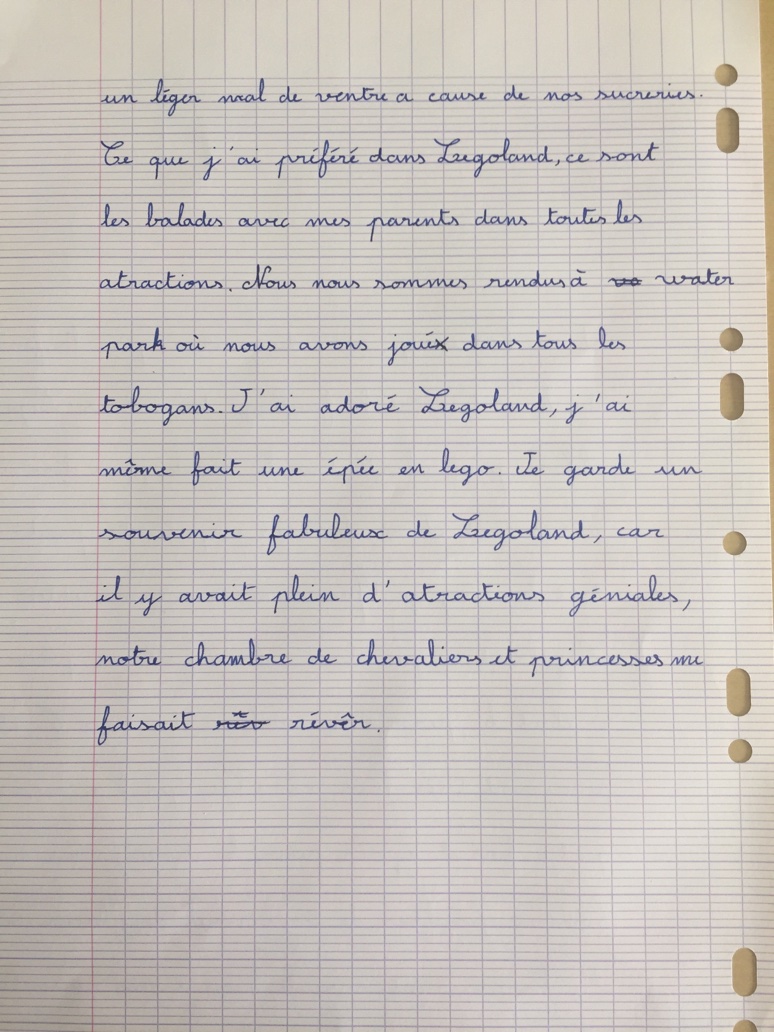 un léger mal de ventre a cause de nos sucreries.
Ce que j'ai préféré dans Legoland, ce sont
les balades avec mes parents dans toutes les
atractions. Nous nous sommes rendus à water
park où nous avons joué dans tous les
tobogans. J'ai adoré Legoland, j'ai
même fait une épée en lego. Je garde un
souvenir fabuleux de Legoland, car
il y avait plein d'atractions géniales,
notre chambre de chevaliers et princesses me
faisait révêr.